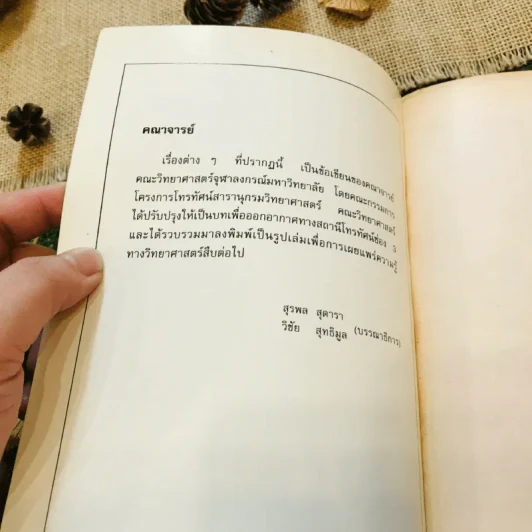 คณาจารย์
เรื่องต่าง ๆ ที่ปรากฏนี้ เป็นข้อเขียนของคณาจารย์
คณะวิทยาศาสตร์จุฬาลงกรณ์มหาวิทยาลัย โดยคณะกรรมการ
โครงการโทรทัศน์สารานุกรมวิทยาศาสตร์ คณะวิทยาศาสตร์
ได้ปรับปรุงให้เป็นบทเพื่อออกอากาศทางสถานีโทรทัศน์ช่อง 3
และได้รวบรวมมาลงพิมพ์เป็นรูปเล่มเพื่อการเผยแพร่ความรู้
ทางวิทยาศาสตร์สืบต่อไป
สุรพล สุดารา
วิชัย สุทธิมูล (บรรณาธิการ)